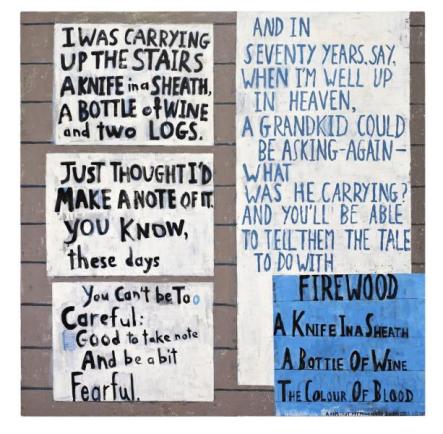 I WAS CARRYING
UP THE STAIRS
A KNIFE in a SHEATH,
A BOTTLE of WINE
and two LOGS.
JUST THOUGHT I'D
MAKE A NOTE OF IT.
YOU KNOW,
these days
You Can't be Too
Careful:
Good to take note
And be a bit
Fearful.
AND IN
SEVENTY YEARS, SAY,
WHEN I'M WELL UP
IN HEAVEN,
A GRANDKID COULD
BE ASKING-AGAIN-
WHAT
WAS HE CARRYING?
AND YOU'LL BE ABLE
TO TELL THEM THE TALE
TO DO WITH
FIREWOOD
A KNIFE IN A SHEATH
A BOTTLE OF WINE
THE COLOUR OF BLOOD